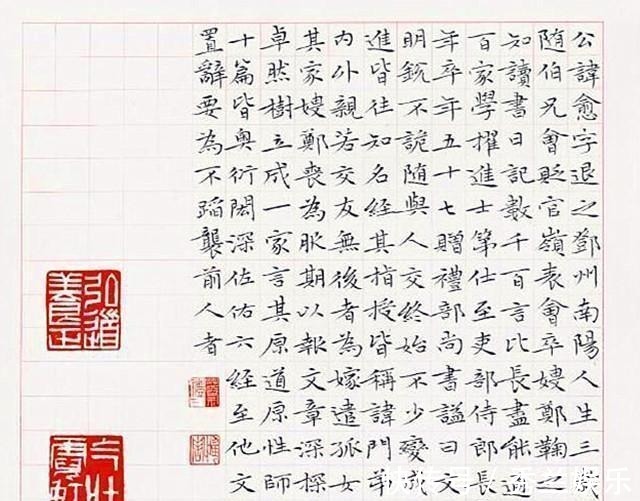 公諱愈字退之鄧州南陽人生三
随伯兄會貶官嶺表會卒嫂鄭鞠之
知讀書日記數千百言比長盡能
百家學擢進士第仕至吏部侍郎長
年卒年五十七贈禮部尚書謚曰文
明銳不詭随與人交終始不少變
進皆往知名經其指授皆稱諱門弟
内外親若交友無後者為嫁遣孤女
其家嫂鄭喪為服期以報文章深探
卓然樹立成一家言其原道原性師
十篇皆奧衍閎深佐佑六經至他文
置辭要為不蹈襲前人者
弘道養正